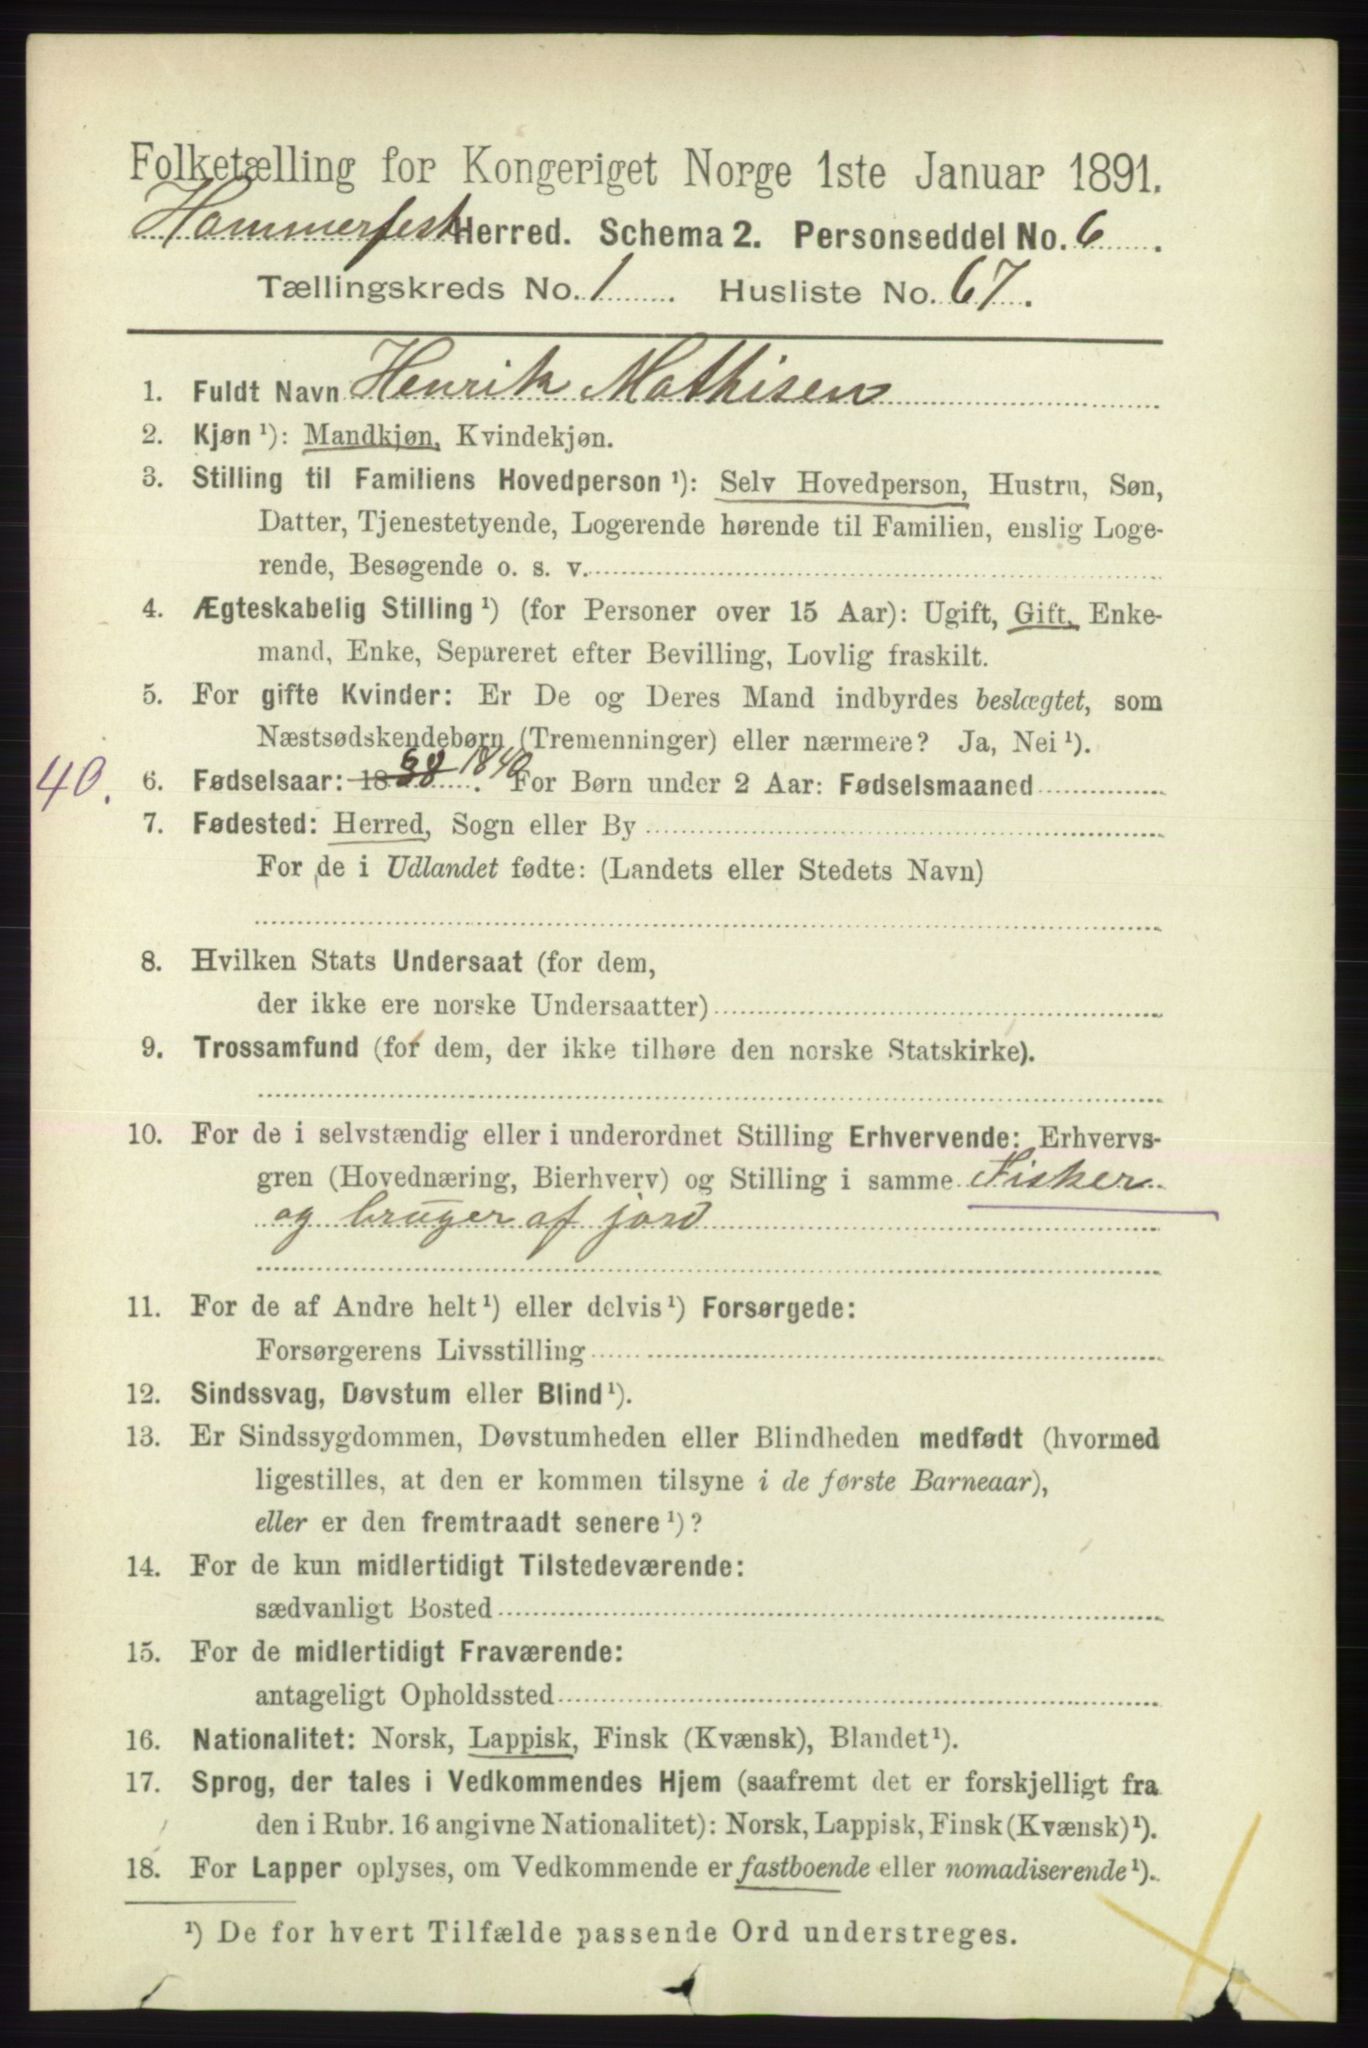 Folketælling for Kongeriget Norge 1ste Januar 1891.
Hammerfest Herred. Schema 2. Personseddel No. 6.
Tællingskreds No. 1. Husliste No. 67.
1. Fuldt Navn Henrik Mathisen
2. Kjøn ¹): Mandkjøn, Kvindekjøn.
3. Stilling til Familiens Hovedperson ¹): Selv Hovedperson, Hustru, Søn,
Datter, Tjenestetyende, Logerende hørende til Familien, enslig Loge-
rende, Besøgende o. s. v.
4. Ægteskabelig Stilling ¹) (for Personer over 15 Aar): Ugift, Gift, Enke-
mand, Enke, Separeret efter Bevilling, Lovlig fraskilt.
5. For gifte Kvinder: Er De og Deres Mand indbyrdes beslægtet, som
Næstsødskendebørn (Tremenninger) eller nærmere? Ja, Nei ¹).
40. 6. Fødselsaar: 18 1840. For Børn under 2 Aar: Fødselsmaaned
7. Fødested: Herred, Sogn eller By
For de i Udlandet fødte: (Landets eller Stedets Navn)
8. Hvilken Stats Undersaat (for dem,
der ikke ere norske Undersaatter)
9. Trossamfund (for dem, der ikke tilhøre den norske Statskirke).
10. For de i selvstændig eller i underordnet Stilling Erhvervende: Erhvervs-
gren (Hovednæring, Bierhverv) og Stilling i samme Fisker
og bruger af jord
11. For de af Andre helt ¹) eller delvis ¹) Forsørgede:
Forsørgerens Livsstilling
12. Sindssvag, Døvstum eller Blind ¹).
13. Er Sindssygdommen, Døvstumheden eller Blindheden medfødt (hvormed
ligestilles, at den er kommen tilsyne i de første Barneaar),
eller er den fremtraadt senere ¹)?
14. For de kun midlertidigt Tilstedeværende:
sædvanligt Bosted
15. For de midlertidigt Fraværende:
antageligt Opholdssted
16. Nationalitet: Norsk, Lappisk, Finsk (Kvænsk), Blandet ¹).
17. Sprog, der tales i Vedkommendes Hjem (saafremt det er forskjelligt fra
den i Rubr. 16 angivne Nationalitet): Norsk, Lappisk, Finsk (Kvænsk) ¹).
18. For Lapper oplyses, om Vedkommende er fastboende eller nomadiserende ¹).
¹) De for hvert Tilfælde passende Ord understreges.